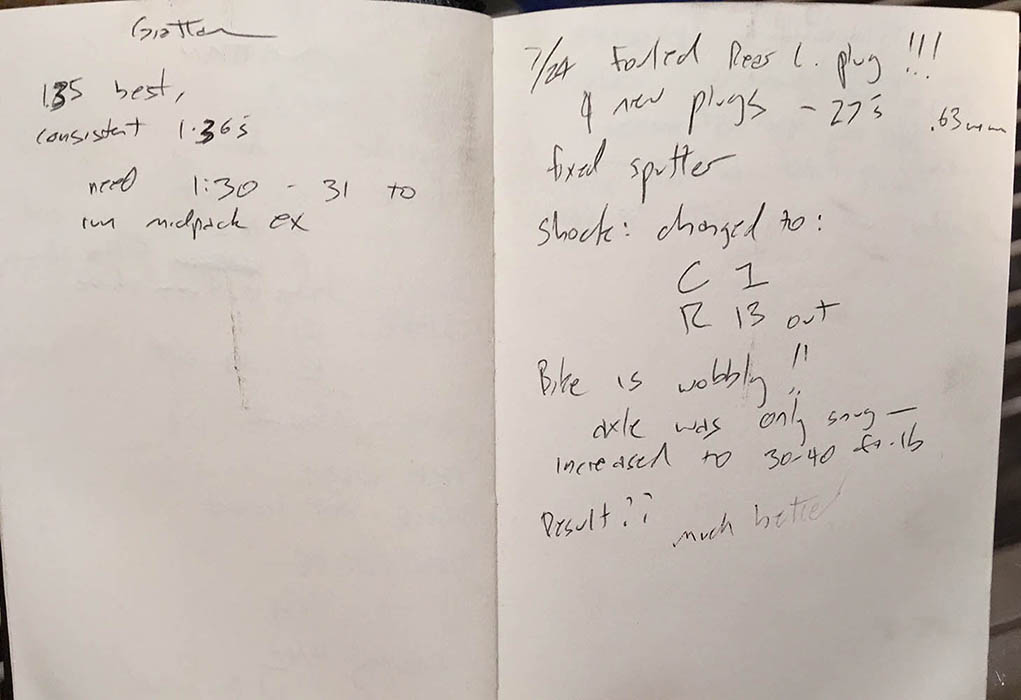 Grattan
1:35 best,
consistent 1:36's
need 1:30 - 31 to
run midpack ex
7/24 fouled Rear L. plug !!!
4 new plugs - 27's .63mm
fixed sputter
Shock: changed to:
C 1
R 13 out
Bike is wobbly !!
axle was only snug —
increased to 30-40 ft-lb
Result?? much better